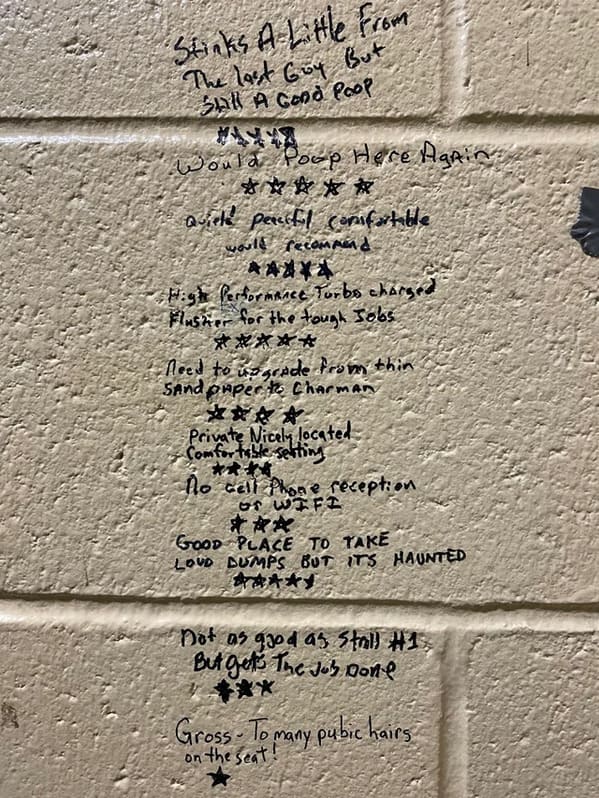 Stinks A Little From
The last Guy But
Still A Good Poop
★★★★★
Would Poop Here Again
★★★★★
Quiet peaceful comfortable
would recommend
★★★★★
High Performance Turbo charged
Flusher for the tough Jobs
★★★★★
Need to upgrade from thin
SANd pAper to Charman
★★★★
Private Nicely located
Comfortable setting
★★★★
No cell Phone reception
or WIFI
★★★
GOOD PLACE TO TAKE
LOUD DUMPS BUT ITS HAUNTED
★★★★★
Not as good as Stall #1
But gets The Job Done
★★★
Gross - To many pubic hairs
on the seat!
★